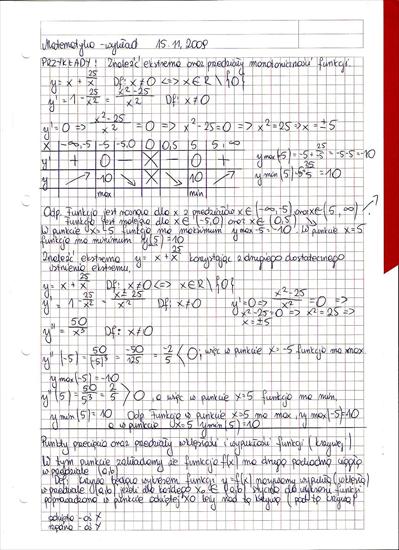 Matematyka - wykład 15.11.2009
PRZYKŁADY: Znaleźć ekstrema oraz przedziały monotoniczności funkcji.
y = x + 25/x Df: x≠0 <=> x∈R \ {0}
y' = 1 - 25/x² = x²-25/x² Df: x≠0
y' = 0 => x²-25/x² = 0 => x²-25=0 => x²=25 => x=±5
x -∞,-5 -5 -5,0 0 0,5 5 5,∞
y' + 0 - X - 0 +
y ↗ 10 ↘ X ↘ 10 ↗
max min
y max(-5) = -5+25/-5 = -5-5=-10
y min(5) = 10
Odp. Funkcja jest rosnąca dla x z przedziałów x∈(-∞,-5) oraz x∈(5,∞)
Funkcja jest malejąca dla x∈(-5,0) oraz x∈(0,5)
W punkcie x=-5 funkcja ma maksimum y max -5 = -10. W punkcie x=5
funkcja ma minimum y(5)=10
Znaleźć ekstrema y = x + 25/x korzystając z drugiego dostatecznego
istnienia ekstremu.
y = x + 25/x Df: x≠0 <=> x∈R \ {0}
y' = 1 - 25/x² = x²-25/x² Df: x≠0
y'=0 => x²-25/x² = 0 =>
x²-25=0 => x²=25 =>
x=±5
y'' = 50/x³ Df: x≠0
y''(-5) = 50/(-5)³ = -50/125 = -2/5 < 0; więc w punkcie x=-5 funkcja ma max
y max(-5) = -10
y''(5) = 50/5³ = 2/5 > 0, a więc w punkcie x=5 funkcja ma min,
y min(5) = 10 Odp. Funkcja w punkcie x=5 ma max, y max(-5)=10
a w punkcie x=5 y min(5)=10
Punkty przegięcia oraz przedziały wklęsłości i wypukłości funkcji (krzywej)
W tym punkcie zakładamy że funkcja f(x) ma drugą pochodną ciągłą
w przedziale (a,b)
Def. krzywą będącą wykresem funkcji y=f(x) nazywamy wypukłą (wklęsłą)
w przedziale (a,b) jeżeli dla każdego x₀∈(a,b) styczna do wykresu funkcji
poprowadzona w punkcie odciętej x0 leży nad tą krzywą (pod tą krzywą)
odcięta - oś X
rzędna - oś Y